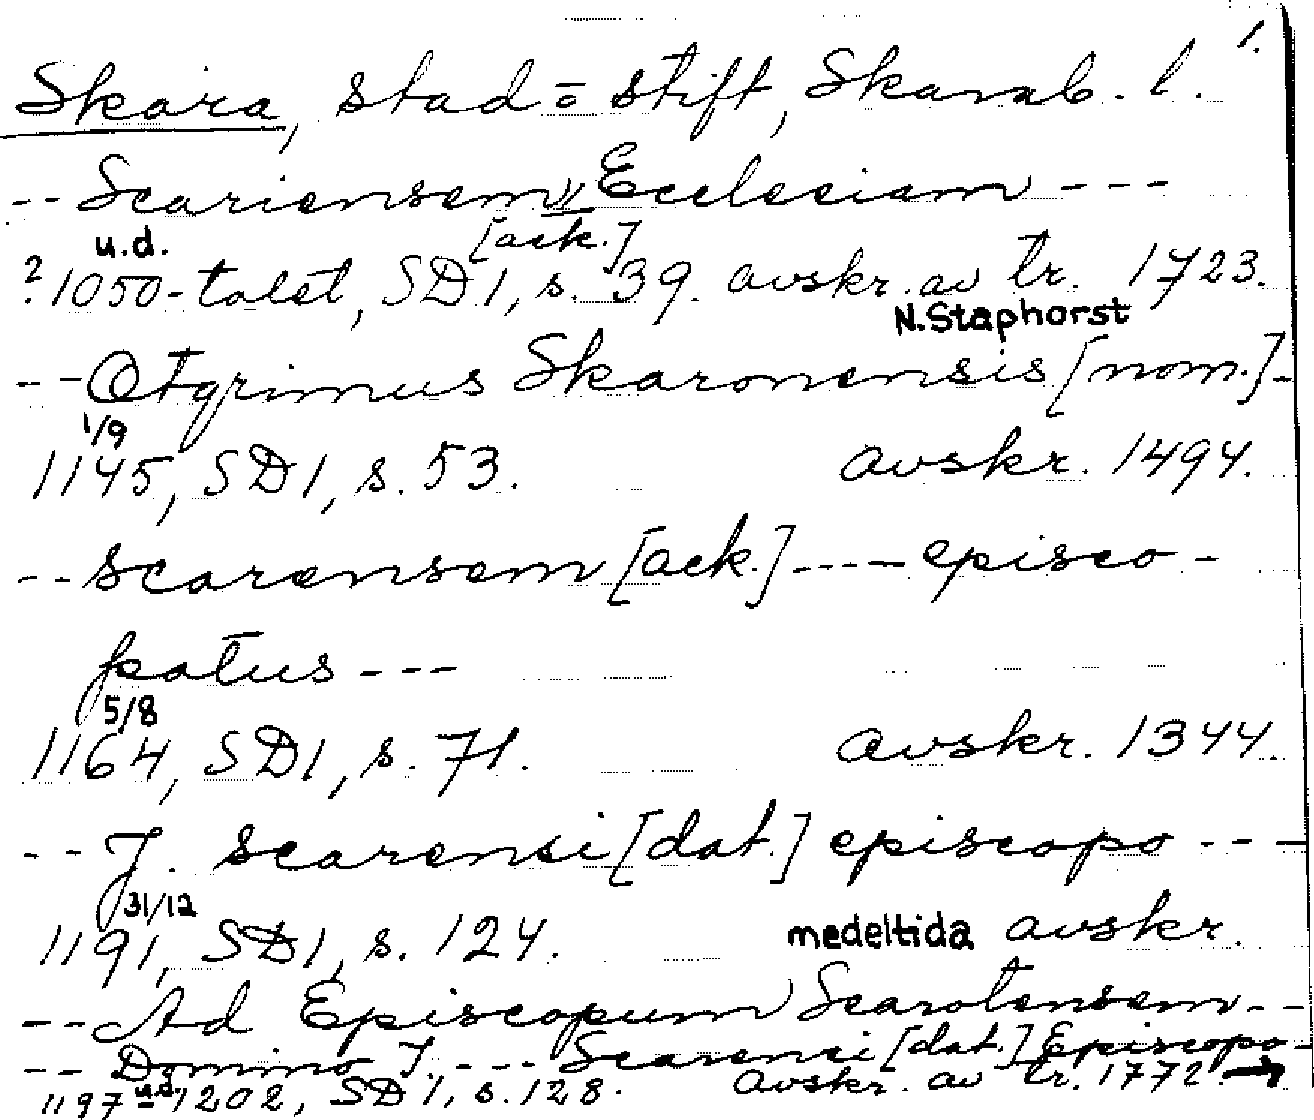 1.
Skara, stad o stift, Skarab. l.
-- Scariensem, Ecclesiam ---
u.d. [ack.]
? 1050-talet, SD 1, s. 39. avskr. av tr. 1723.
N. Staphorst
-- Otgrimus Skaronensis [nom.] -
1/9
1145, SD 1, s. 53. avskr. 1494.
-- scarensem [ack.] ---- episco-
patus ---
5/8
1164, SD 1, s. 71. avskr. 1344.
-- J. scarensi [dat.] episcopo ---
31/12
1191, SD 1, s. 124. medeltida avskr.
-- Ad Episcopum Scarotensem --
-- Domino J. --- Scarensi [dat.] Episcopo -
1197 u.d. 1202, SD 1, s. 128. avskr. av tr. 1772. →